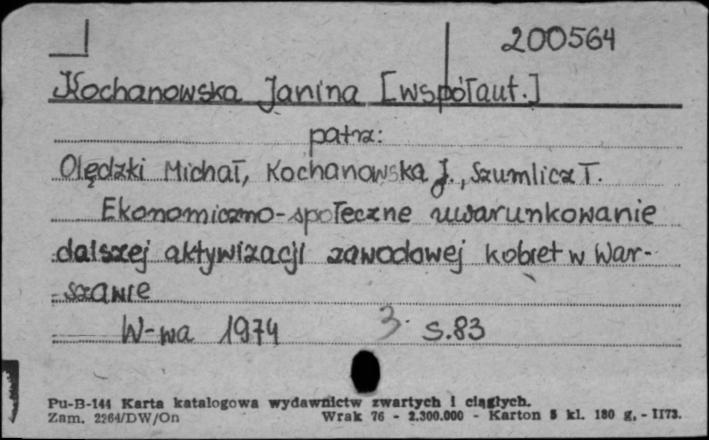 200564
Kochanowska Janina [współaut.]
patrz:
Olędzki Michał, Kochanowska J., Szumlicz T.
Ekonomiczno-społeczne uwarunkowanie
dalszej aktywizacji zawodowej kobiet w War-
szawie
W-wa 1974 3. s.83
Pu-B-144 Karta katalogowa wydawnictw zwartych i ciągłych.
Zam. 2264/DW/On Wrak 76 - 2.300.000 - Karton 5 kl. 180 g. - II73.